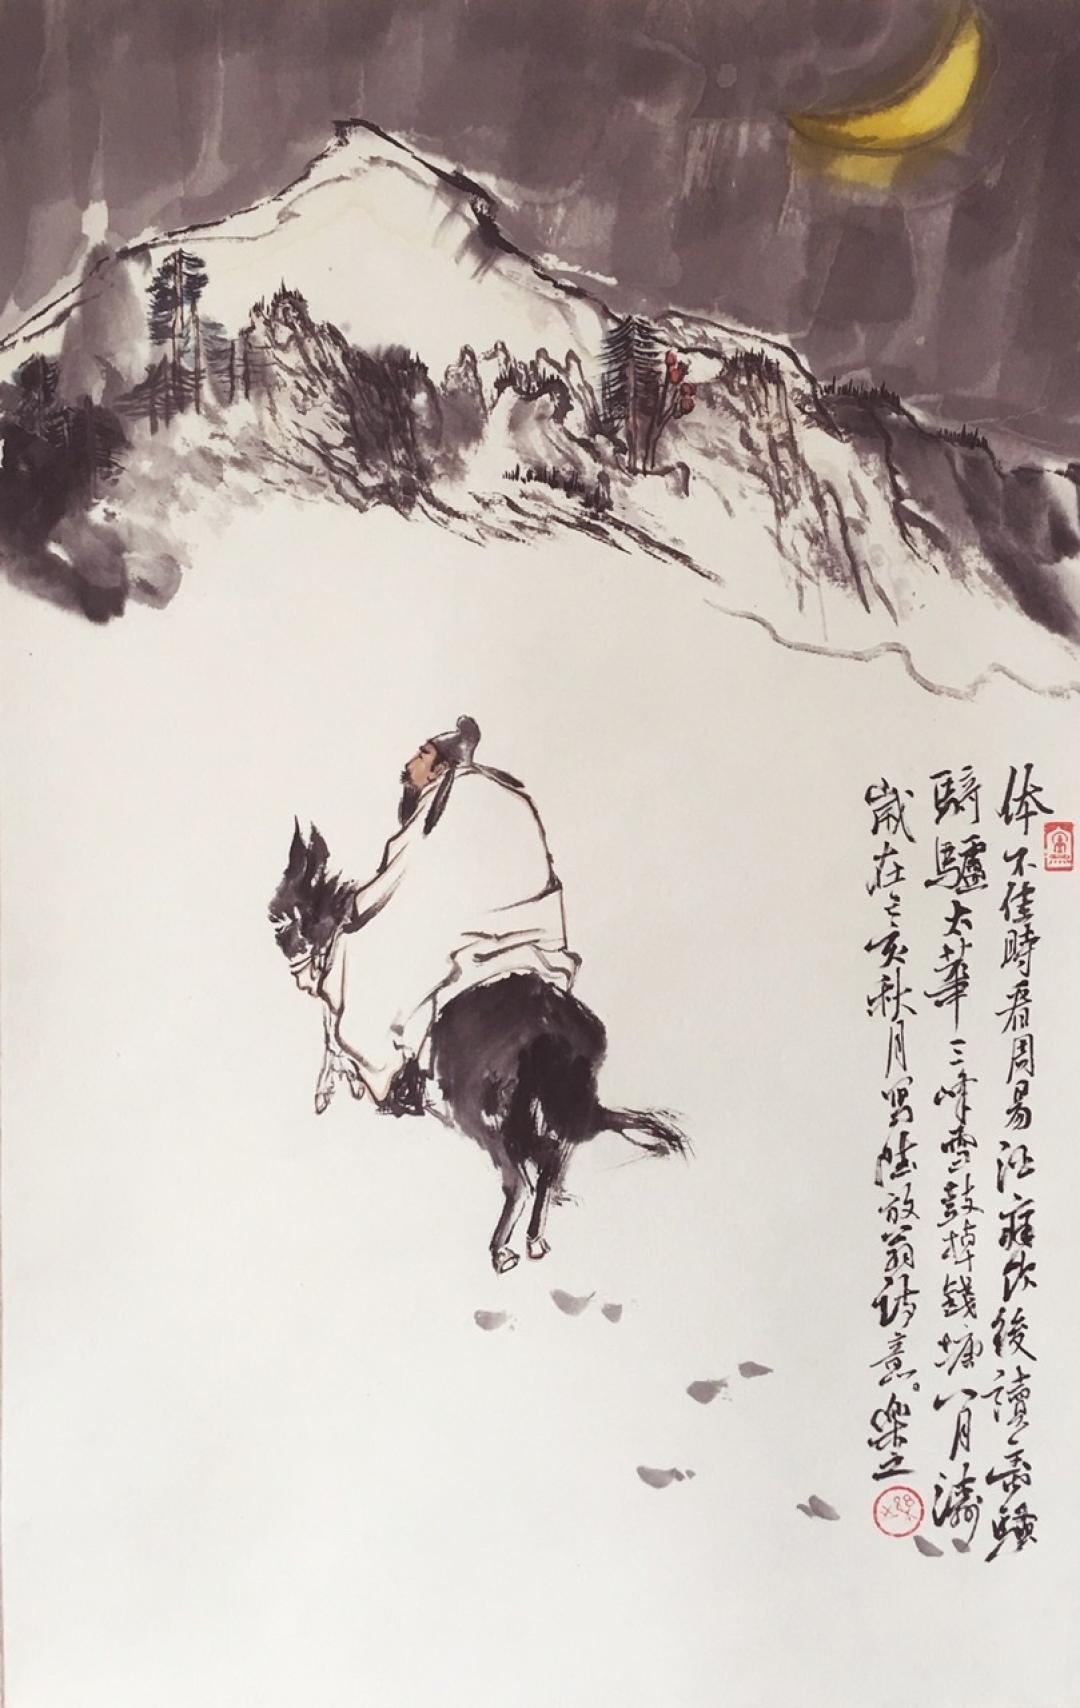 体不佳時看周易酒痛飲後讀离騷
騎驢太華三峰雪鼓棹錢塘八月濤
歲在己亥秋月寫陸放翁詩意。樂之